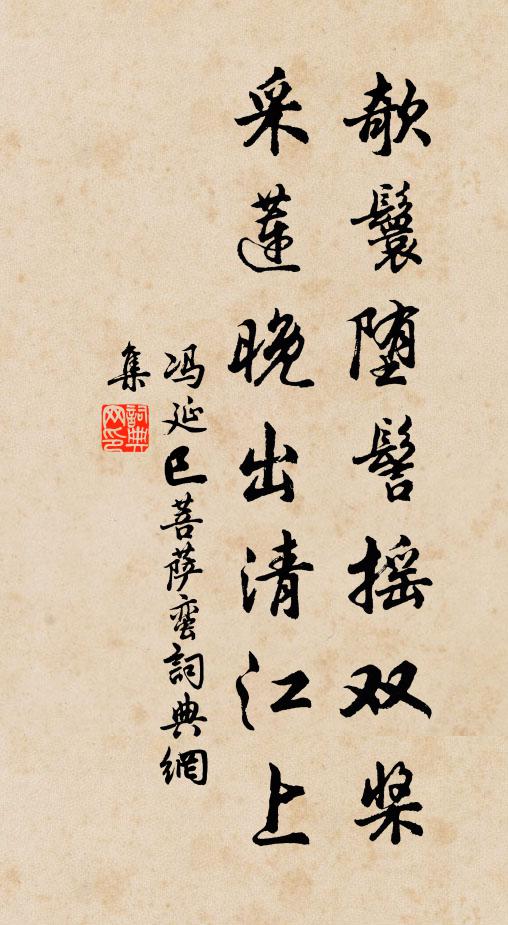 欹鬟堕髻摇双桨
采莲晚出清江上
冯延巳菩萨蛮詞典網
集
詞典网印